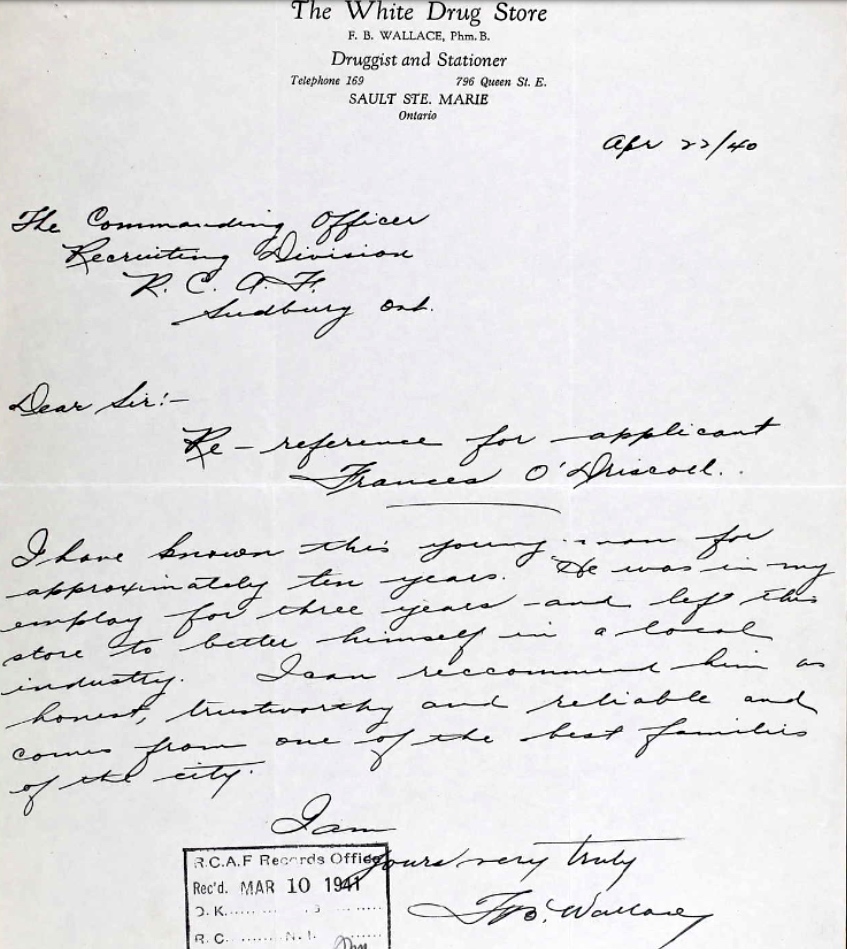 The White Drug Store
F. B. WALLACE, Phm. B.
Druggist and Stationer
Telephone 169 796 Queen St. E.
SAULT STE. MARIE
Ontario
Apr 22/40
The Commanding Officer
Recruiting Division
R. C. A. F.
Sudbury Ont.
Dear Sir:-
Re - reference for applicant
Frances O'Driscoll.
I have known this young man for
approximately ten years. He was in my
employ for three years and left this
store to better himself in a local
industry. I can reccommend him as
honest, trustworthy and reliable and
comes from one of the best families
of the city.
I am
Yours very truly
F. B. Wallace
R.C.A.F Records Office
Rec'd. MAR 10 1941
O. K.
R. C.